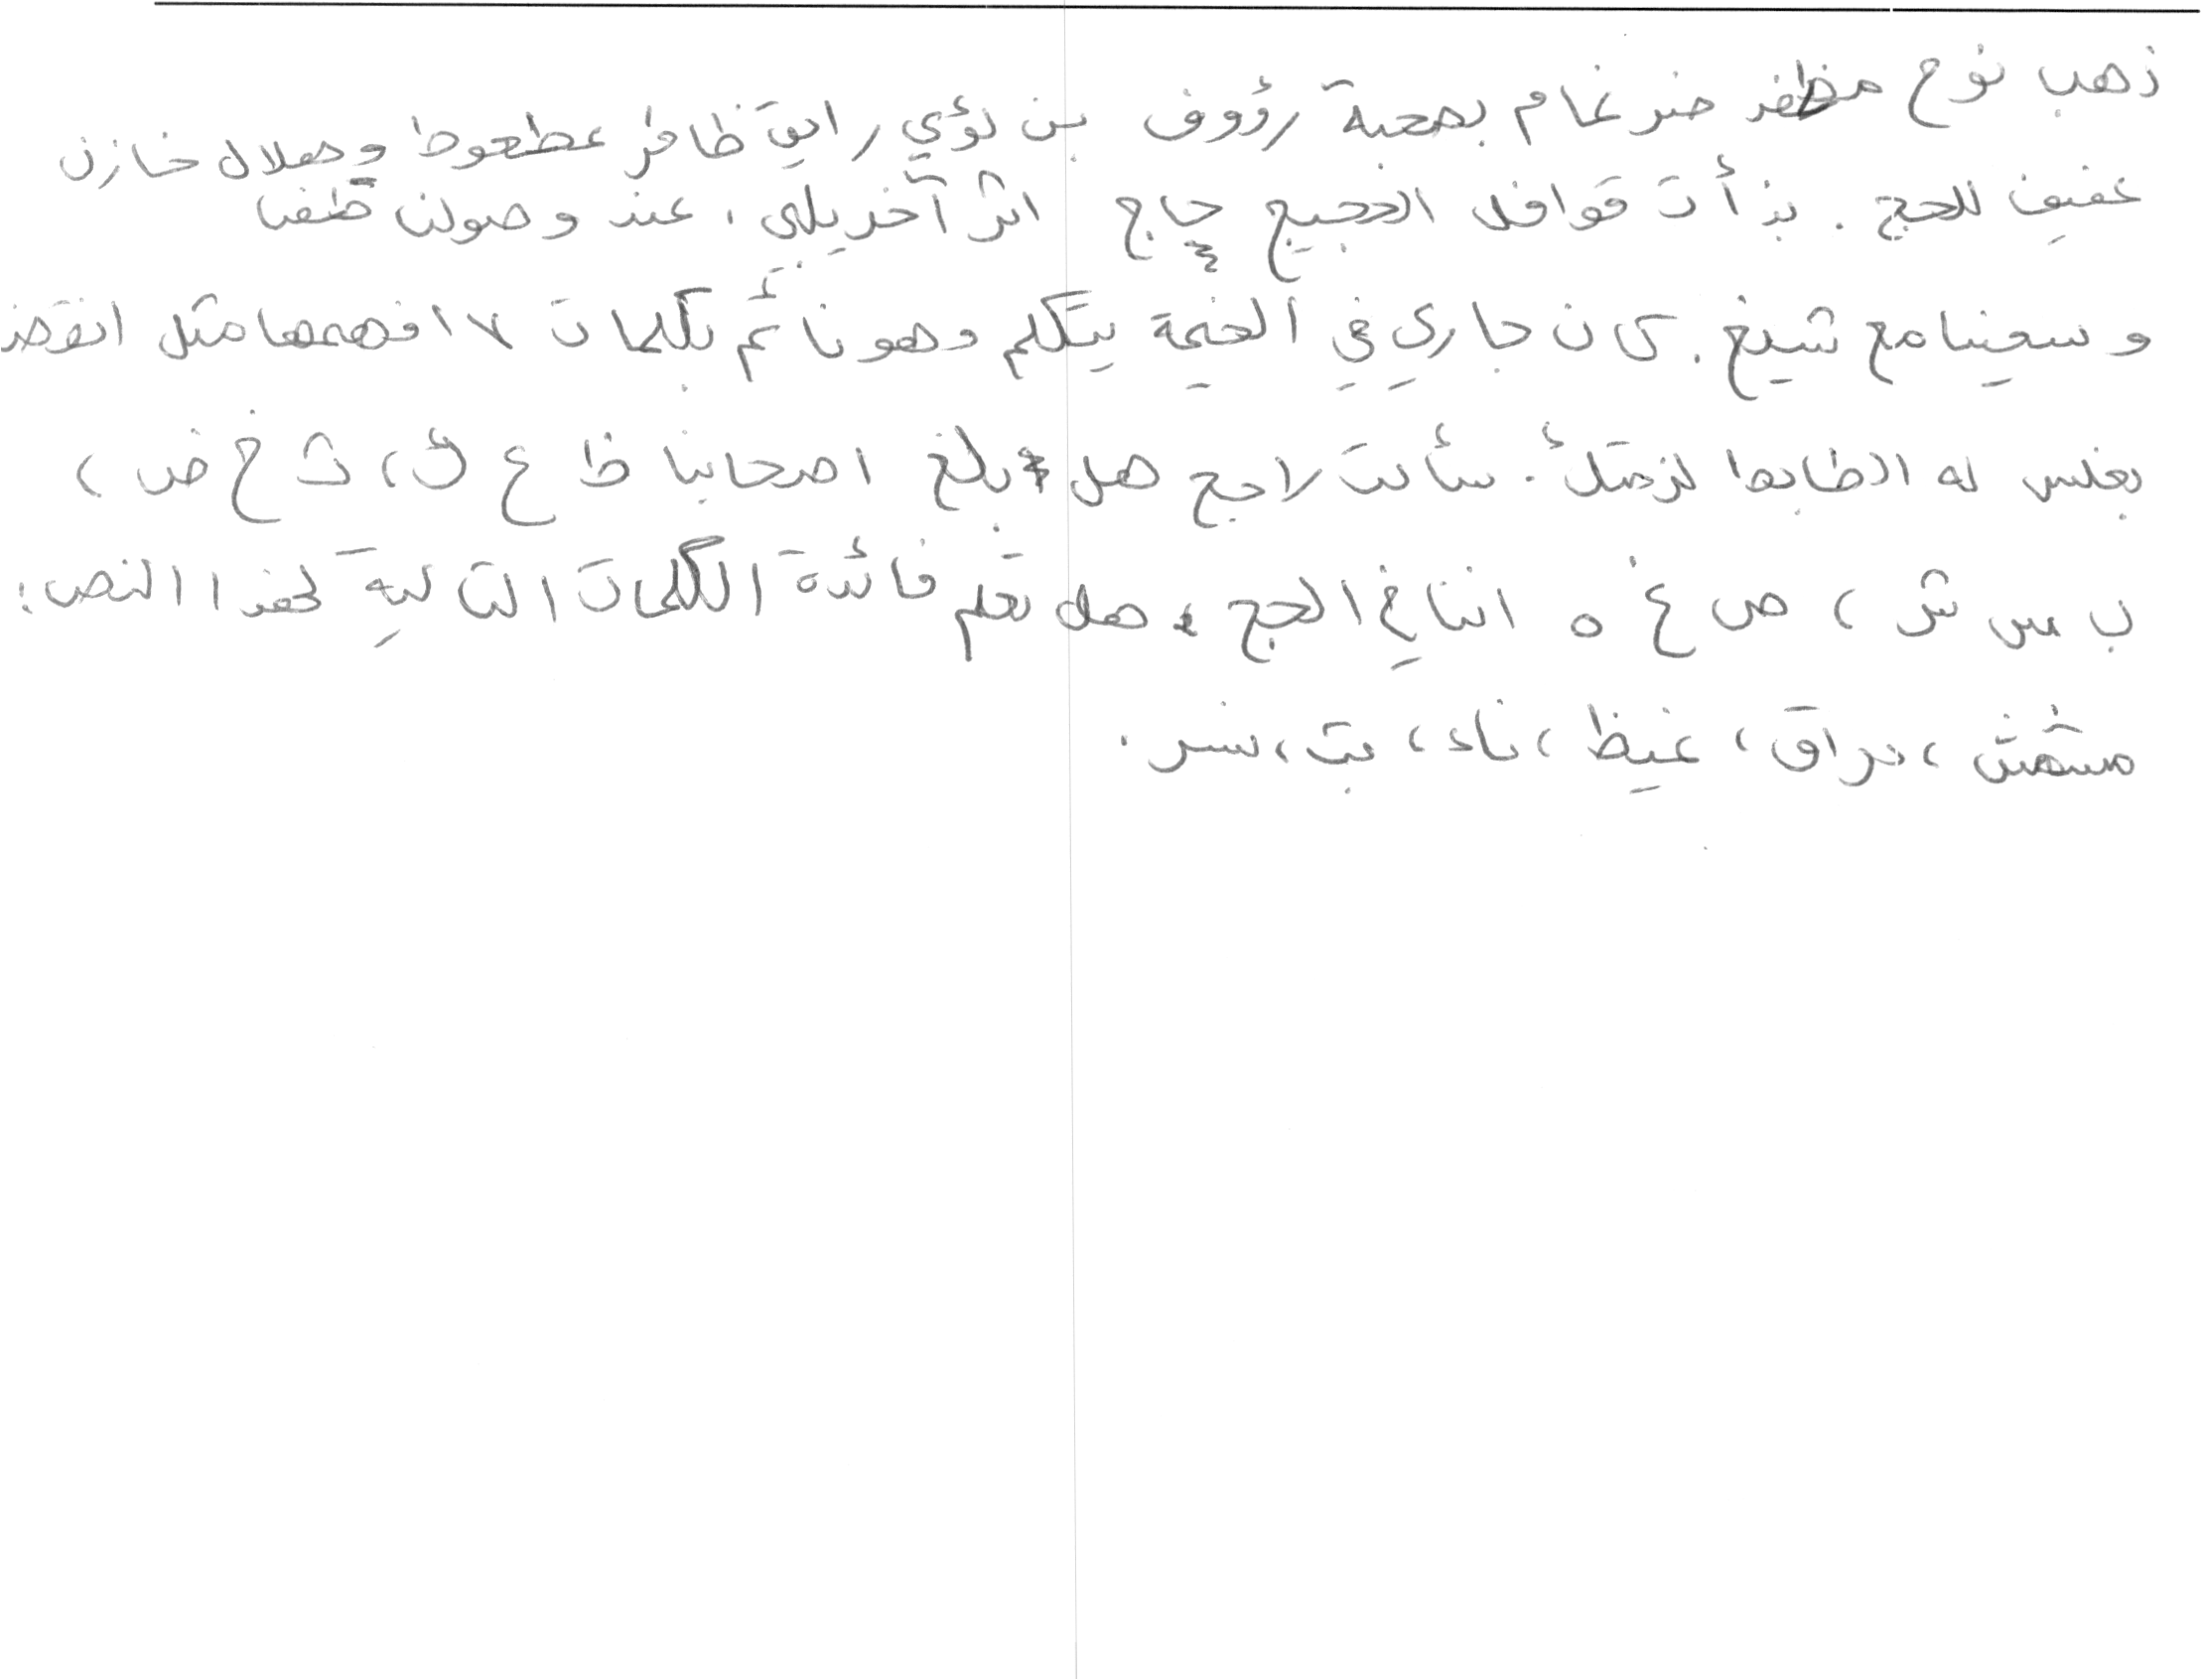 ذهب نوح مظفر ضرغام بصحبة رؤوف بن لؤي رايق ظافر عطعوط وهلال خازن
عفيف للحج . بدأت قوافل الحجيج حاج اثر آخر يلبي ، عند وصولن طفنا
وسعينا مع شيخ . كان جاري في الخيمة يتكلم وهو نائم بكلمات لا افهمها مثل انقض
بغلس له الظابط لزمتك . سألت لاجح هل بالغ اصحابنا ظ ع ك ، ث غ ض ،
ب س ش ، ص غ ه اثناغ الحج ، هل تعلم فائدة الكلمات التالية لهذا النص :
مشمش ، براق ، غيظ ، ناد ، بت ، نسر .